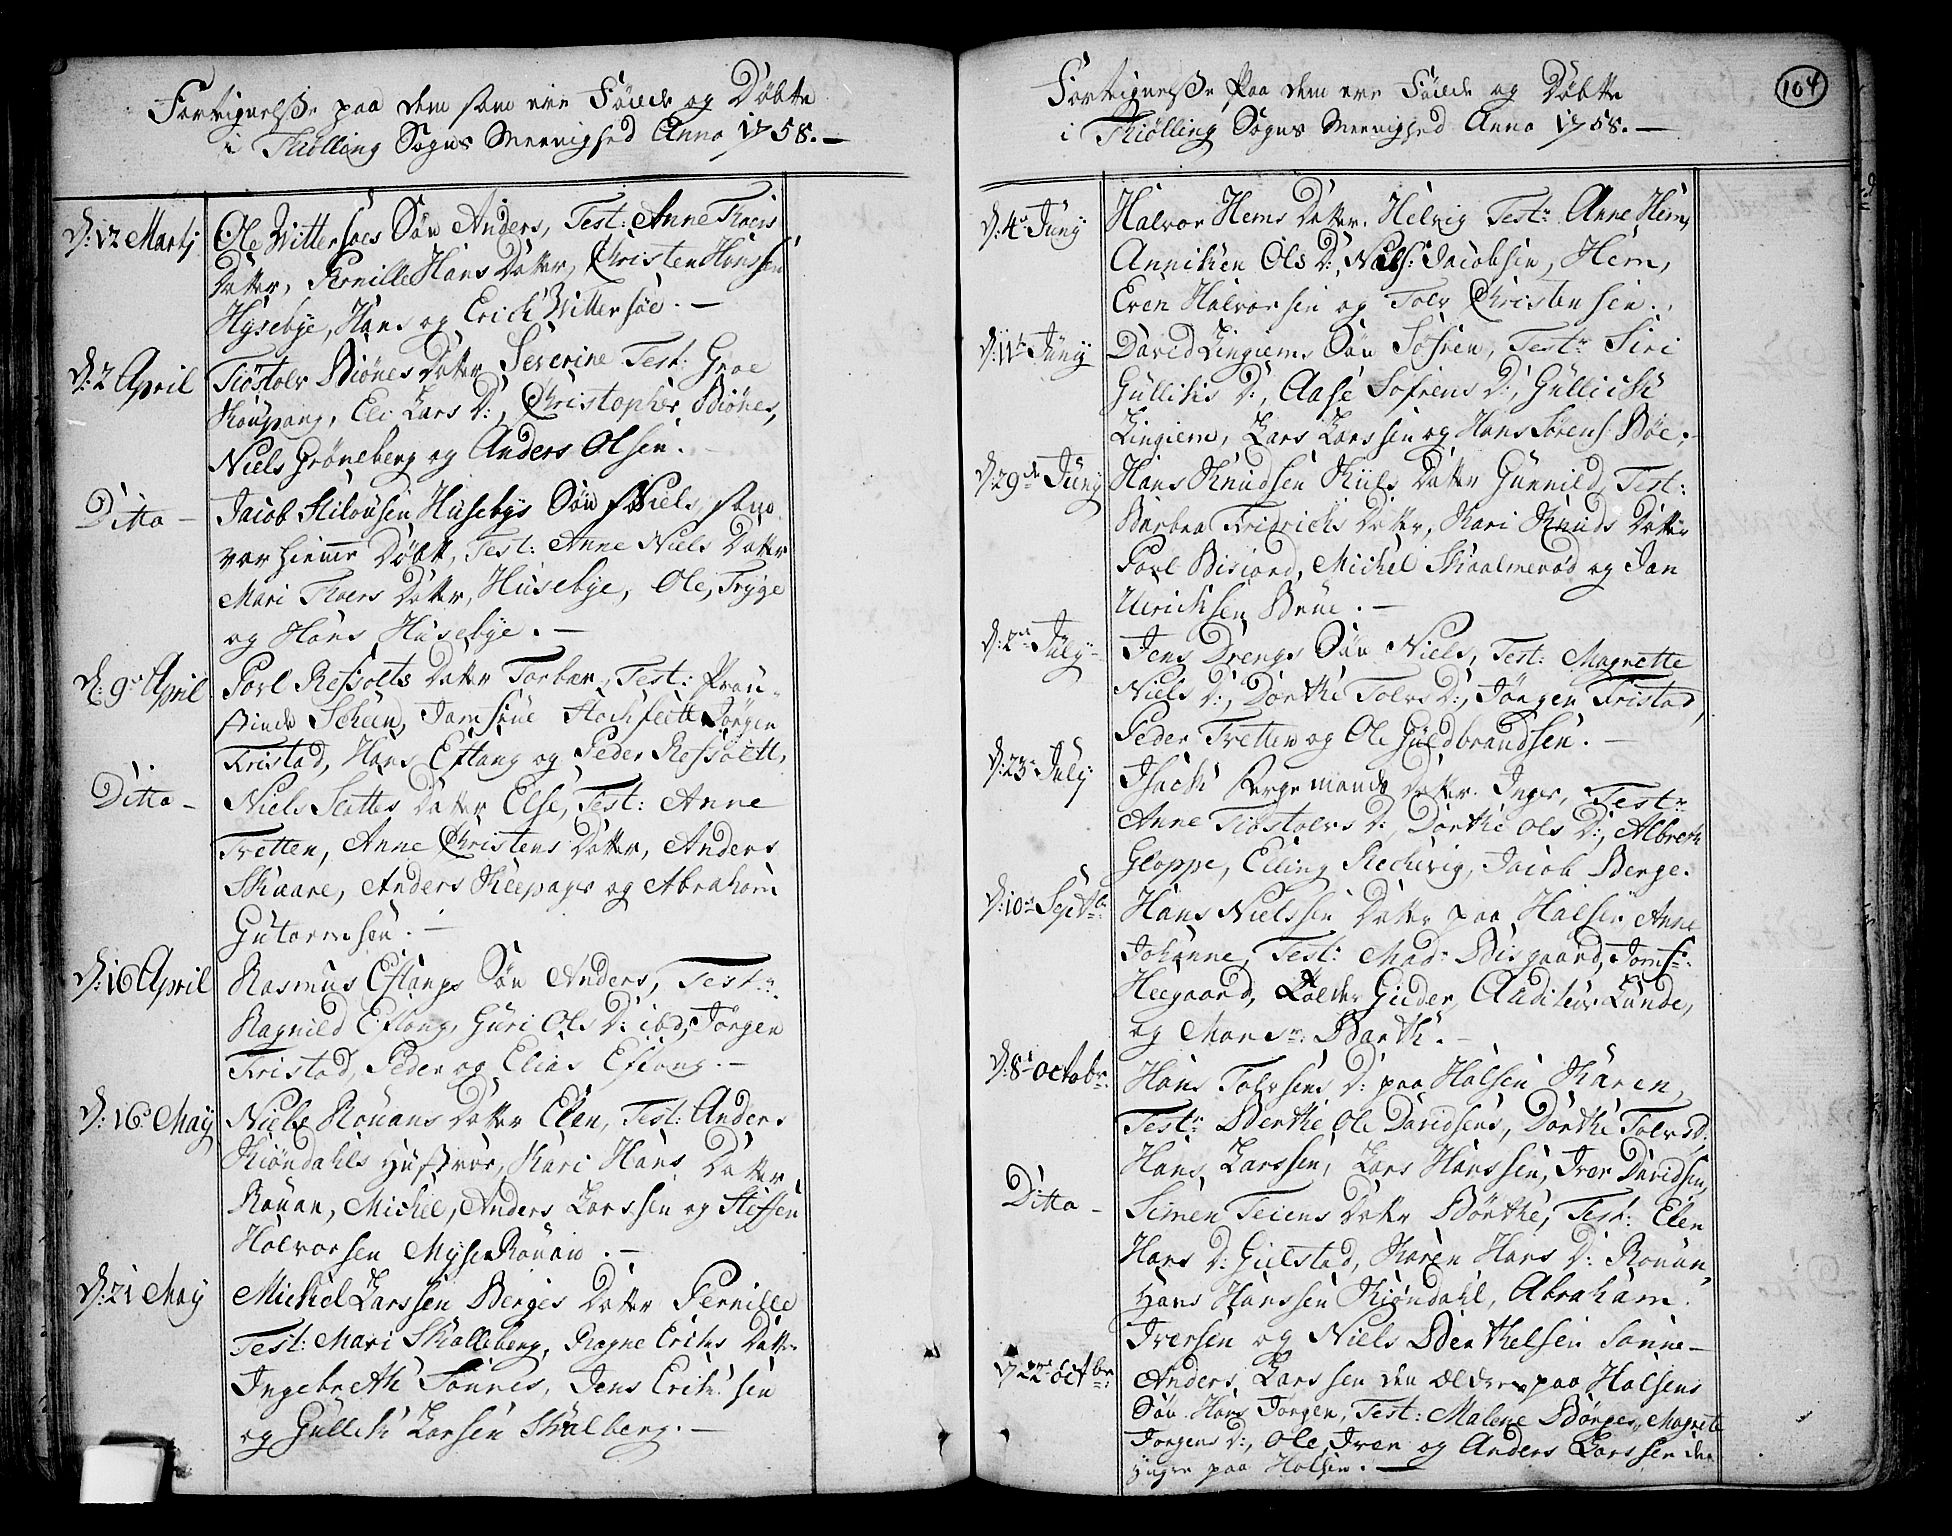 Fortegnelsse paa dem som ere Födde og Döbte
i Thiölling Sogns Meenighed Anno 1758. —
D: 12 Martj
Ole Wittersöes Sön Anders, Test: Anne Thors
Datter, Pernille Hans Datter, Christen Hanssen
Hysebye, Hans og Erich Wittersöe. —
D: 2 April
Tiöstolv Biönes Datter Severine Test: Groe
Koupang, Eli Lars D:, Christopher Biönes,
Niels Gröneberg og Anders Olsen.
Ditto —
Jacob Husebys Sön Niels, som
var hiemme Döbt, Test: Anne Niels Datter
Mari Thors Datter, Husebye, Ole, Tryge
og Hans Husebye. —
D: 9de April
Povl Datter Torber, Test:
Scheen, Jomfrue Jörgen
Tristad, Hans Eftang og Peder
Ditto —
Niels Datter Else, Test: Anne
Tretten, Anne Christens Datter, Anders
Skaare, Anders Keepager og Abraham
Gutormsen. —
D: 16 April
Rasmus Eftangs Sön Anders, Test:
Ragnild Eftang, Guri Ols D: ibd, Jörgen
Tristad, Peder og Elias Eftang. —
D: 16 May
Niels Rouans Datter Elen, Test: Anders
Kiöndahls Hustroe, Kari Hans Datter
Rouan, Michel, Anders Larssen og Steffen
Halvorsen Rouan. —
D: 21 May
Michel Larssen Berges Datter Pernille
Test: Mari Skalleberg, Ragne Erichs Datter
Ingebreth Sönnes, Jens Erichsen
og Gullich Larsen Skalberg. —
104
Fortegnelsse paa dem ere Födde og Döbte
i Thiölling Sogns Meenighed Anno 1758. —
D: 4 Juny
Halvor Hems Datter Helvig Test: Anne Hem,
Anniken Ols D:, Niels Jacobsen, Hem,
Even Halvorsen og Tolv Christensen.
D: 11te Juny
David Lingiems Sön Sofren, Test: Siri
Gullichs D:, Aase Sofrens D:, Gullich
Lingiem, Lars Larssen og Hans Sörens. Böe. —
D: 29de Juny
Hans Knudsen Kiils Datter Gunnild, Test:
Barbra Fridrichs Datter, Kari Knuds Datter
Povl Bisiord, Michel Skaalmeröd og Jan
Ulrichsen Brue. —
D: 2den July
Jens Drengs Sön Niels, Test: Magnette
Niels D:, Dorthe Tolvs D:, Jörgen Tristad,
Peder Tretten og Ole Guldbrandsen. —
D: 23 July
Isach Bergemands Datter Inger, Test:
Anne Tiöstolvs D:, Dorthe Ols D:, Albreth
Gloppe, Elling Rechevig, Jacob Berge.
D: 10 Septbr:
Hans Nielssen Datter paa Halsen Anne
Johanne, Test: Mad: Bisgaard, Jomf:
Heegaard, Gieder, Auditeur Lunde,
og Monsr: Barth. —
D: 8 Octobr:
Hans Tolvsens D: paa Halsen Karen,
Test: Berthe Ole Davidsens, Dorthe Tolvs D:
Hans Larssen, Lars Hanssen, Iver Davidsen,
Ditto —
Simen Teiens Datter Börthe, Test: Elen
Hans D: Gielstad, Karen Hans D: Rouan,
Hans Hanssen Kiöndahl, Abraham
Iversen og Niels Berthelsen Sonne —
D 22 Octbr:
Anders Larssen den Ældre paa Halsens
Sön Hans Jörgen, Test: Malene Börges, Magrete
Jörgens D:, Ole, Iver og Anders Larssen den
Yngre paa Halsen. —